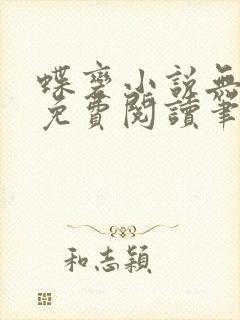 蝶變小說無
免費閱讀筆
和志穎